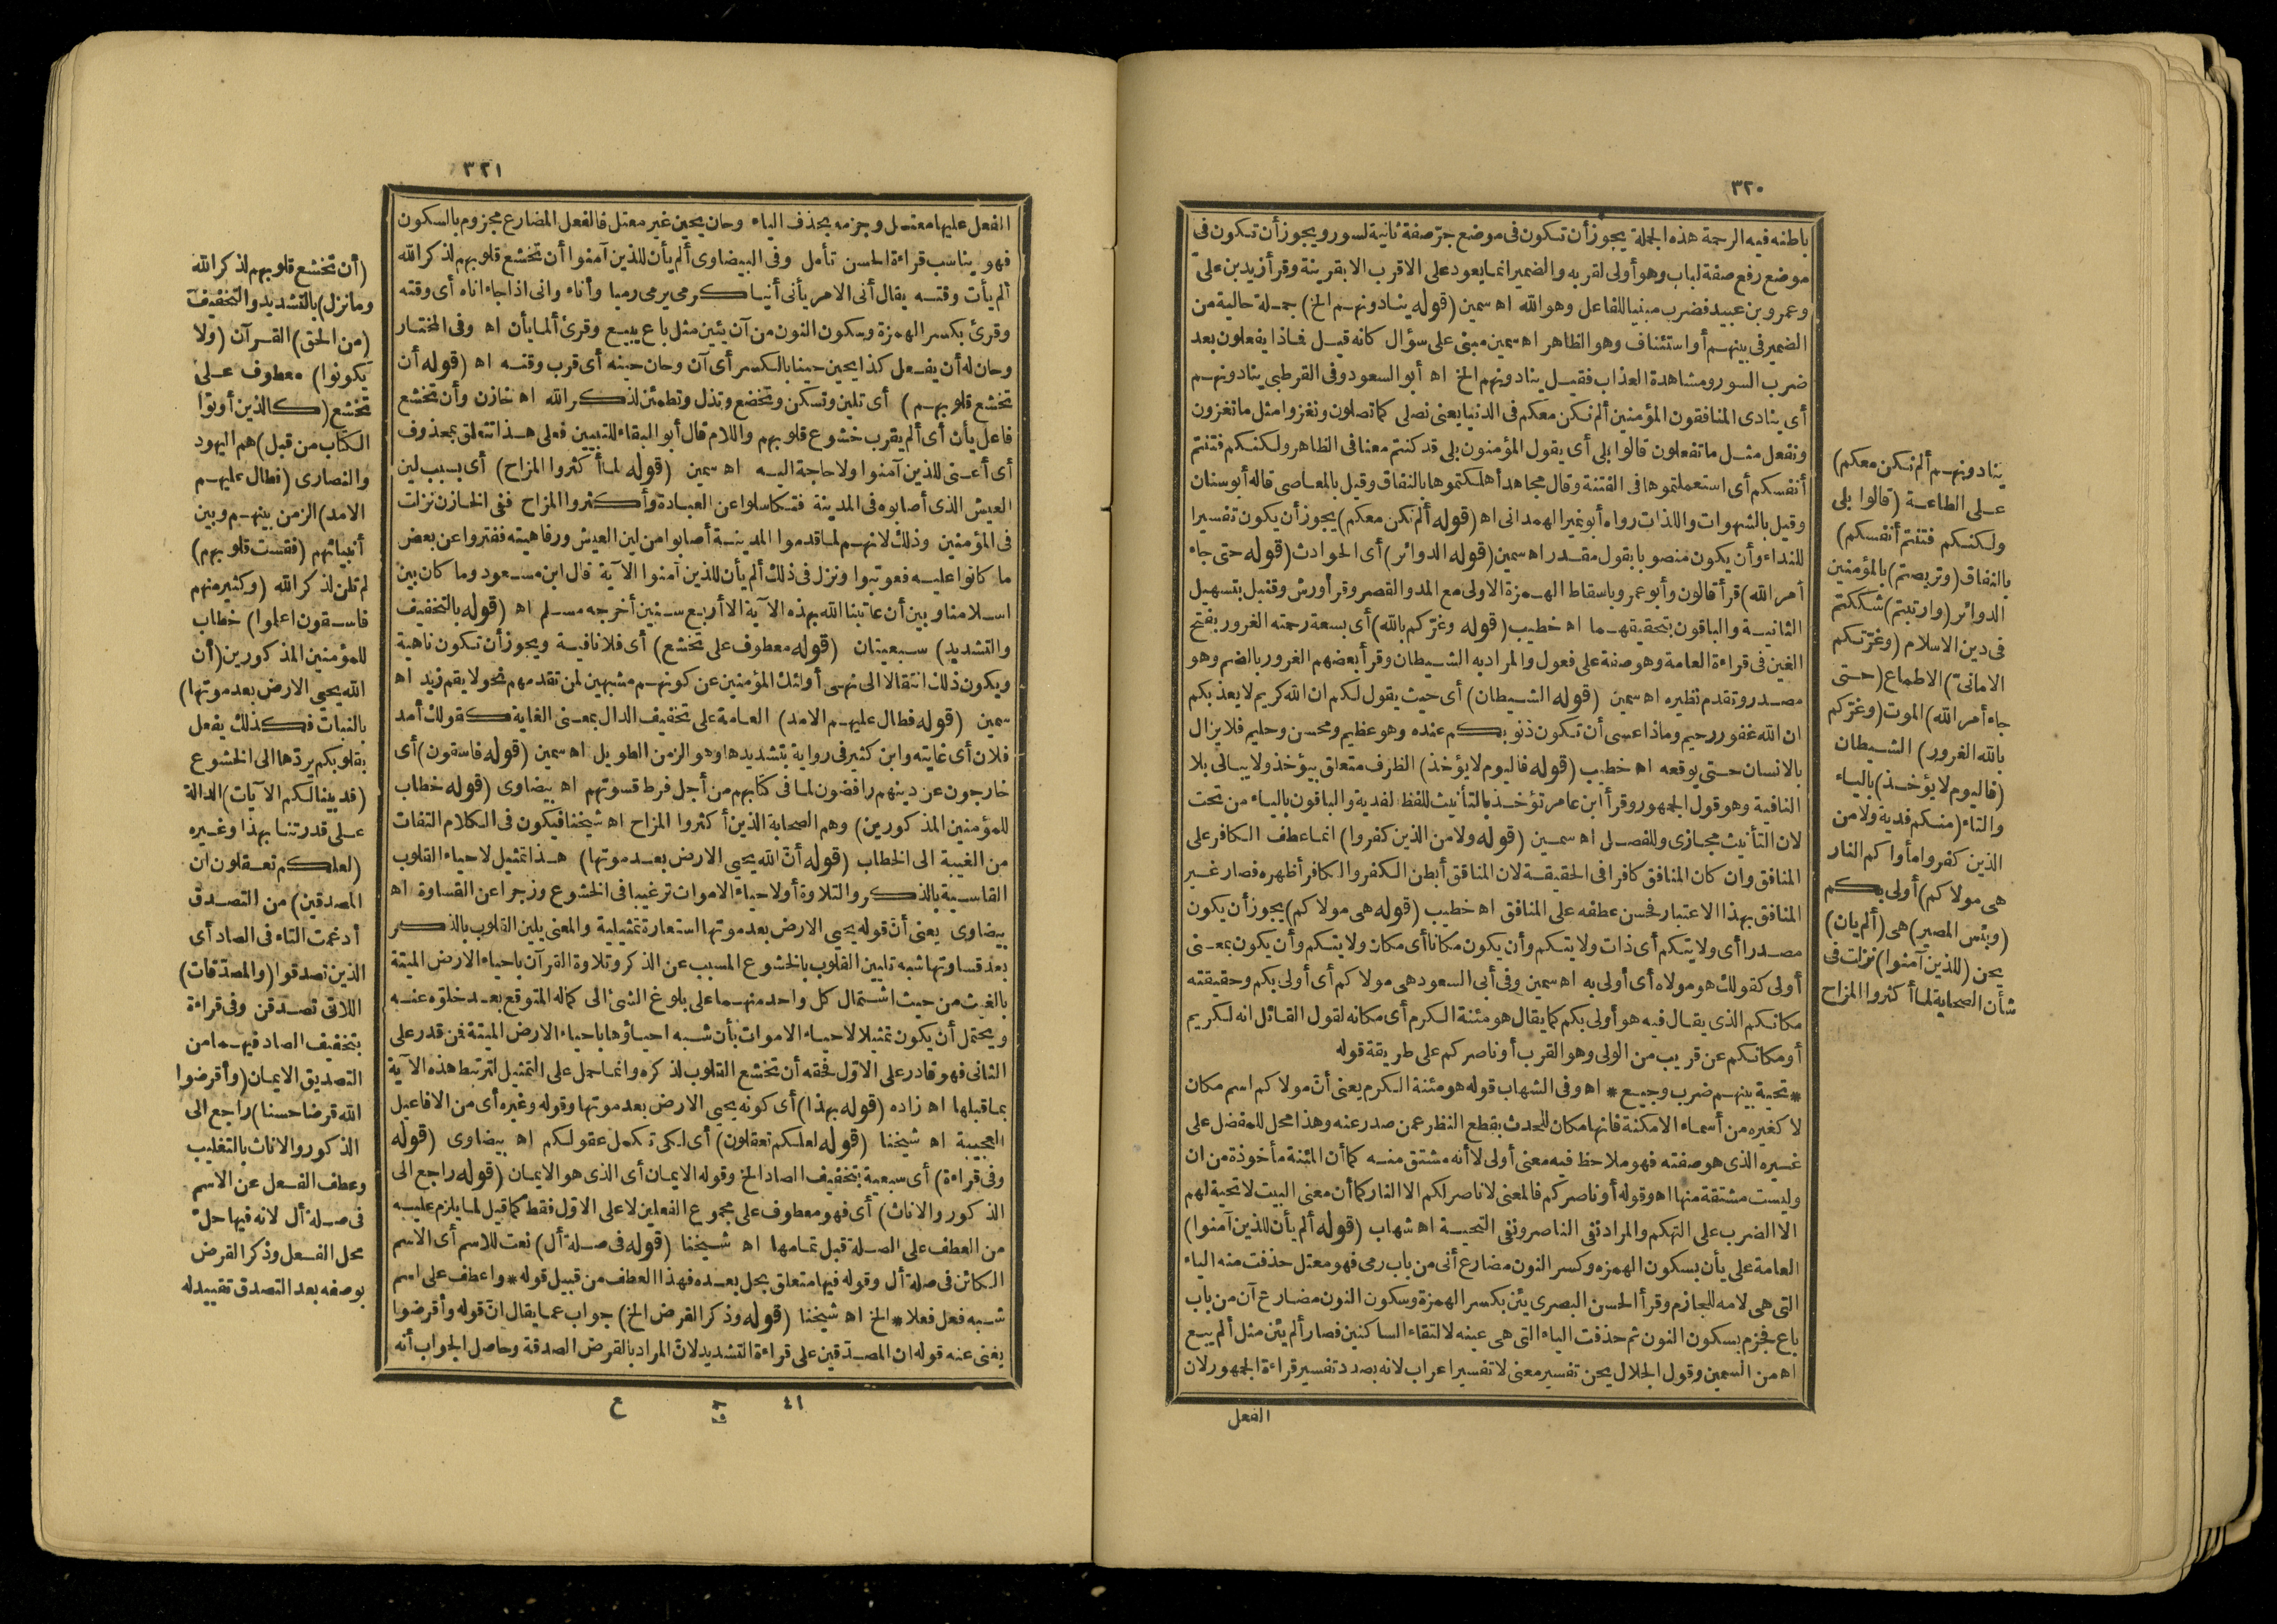 ٣٢٠
باطنه فيه الرحمة هذه الجملة يجوز أن تكون فى موضع جرّ صفة ثانية لسور ويجوز أن تكون فى
موضع رفع صفة لباب وهو أولى لقربه والضمير انما يعود على الاقرب الا بقرينة وقرأ زيد بن علىّ
وعمرو بن عبيد فضرب مبنيا للفاعل وهو الله اه سمين (قوله ينادونهم الخ) جملة حالية من
الضمير فى بينهم أو استئناف وهو الظاهر اه سمين مبنى على سؤال كانه قيل فماذا يفعلون بعد
ضرب السور ومشاهدة العذاب فقيل ينادونهم الخ اه أبو السعود وفى القرطبى ينادونهم
أى ينادى المنافقون المؤمنين ألم نكن معكم فى الدنيا يعنى نصلى كما تصلون ونغزوا مثل ما تغزون
ونفعل مثل ما تفعلون قالوا بلى أى يقول المؤمنون بلى قد كنتم معنا فى الظاهر ولكنكم فتنتم
أنفسكم أى استعملتموها فى الفتنة وقال مجاهد أهلكتموها بالنفاق وقيل بالمعاصى قاله أبو سنان
وقيل بالشهوات واللذات رواه أبو نمير الهمدانى اه (قوله ألم نكن معكم) يجوز أن يكون تفسيرا
للنداء وأن يكون منصوبا بقول مقدر اه سمين (قوله الدوائر) أى الحوادث (قوله حتى جاء
أمر الله) قرأ قالون وأبو عمرو باسقاط الهمزة الاولى مع المد والقصر وقرأ ورش وقنبل بتسهيل
الثانية والباقون بتحقيقهما اه خطيب (قوله وغرّكم بالله) أى بسعة رحمته الغرور بفتح
الغين فى قراءة العامة وهو صفة على فعول والمراد به الشيطان وقرأ بعضهم الغرور بالضم وهو
مصدر وتقدم نظيره اه سمين (قوله الشيطان) أى حيث يقول لكم ان الله كريم لا يعذبكم
ان الله غفور رحيم وماذا عسى أن تكون ذنوبكم عنده وهو عظيم ومحسن وحليم فلا يزال
بالانسان حتى يوقعه اه خطيب (قوله فاليوم لا يؤخذ) الظرف متعلق بيؤخذ ولا يبالى بلا
النافية وهو قول الجمهور وقرأ ابن عامر تؤخذ بالتأنيث للفظ لفدية والباقون بالياء من تحت
لان التأنيث مجازى وللفصل اه سمين (قوله ولا من الذين كفروا) انما عطف الكافر على
المنافق وان كان المنافق كافرا فى الحقيقة لان المنافق أبطن الكفر والكافر أظهره فصار غير
المنافق بهذا الاعتبار فحسن عطفه على المنافق اه خطيب (قوله هى مولاكم) يجوز أن يكون
مصدرا أى ولايتكم أى ذات ولايتكم وأن يكون مكانا أى مكان ولايتكم وأن يكون بمعنى
أولى كقولك هو مولاه أى أولى به اه سمين وفى أبى السعود هى مولاكم أى أولى بكم وحقيقته
مكانكم الذى يقال فيه هو أولى بكم كما يقال هو مئنة الكرم أى مكانه لقول القائل انه لكريم
أو مكانكم عن قريب من الولى وهو القرب أو ناصركم على طريقة قوله
* تحية بينهم ضرب وجيع * اه وفى الشهاب قوله هو مئنة الكرم يعنى أنّ مولاكم اسم مكان
لا كغيره من أسماء الامكنة فانها مكان للحدث بقطع النظر عمن صدر عنه وهذا محل للمفضل على
غيره الذى هو صفته فهو ملاحظ فيه معنى أولى لا أنه مشتق منه كما أن المئنة مأخوذة من ان
وليست مشتقة منها اه وقوله أو ناصركم فالمعنى لا ناصر لكم الا النار كما أن معنى البيت لا تحية لهم
الا الضرب على التهكم والمراد نفى الناصر ونفى التحية اه شهاب (قوله ألم يأن للذين آمنوا)
العامة على يأن بسكون الهمزه وكسر النون مضارع أنى من باب رمى فهو معتل حذفت منه الياء
التى هى لامه للجازم وقرأ الحسن البصرى يئن بكسر الهمزة وسكون النون مضارع آن من باب
باع فجزم بسكون النون ثم حذفت الياء التى هى عينه لالتقاء الساكنين فصار ألم يئن مثل ألم يبع
اه من السمين وقول الجلال يحن تفسير معنى لا تفسير اعراب لانه بصدد تفسير قراءة الجمهور لان
الفعل
ينادونهم ألم نكن معكم)
على الطاعة (قالوا بلى
ولكنكم فتنتم أنفسكم)
بالنفاق (وتربصتم) بالمؤمنين
الدوائر (وارتبتم) شككتم
فى دين الاسلام (وغرّتكم
الامانىّ) الاطماع (حتى
جاء أمر الله) الموت (وغرّكم
بالله الغرور) الشيطان
(فاليوم لا يؤخذ) بالياء
والتاء (منكم فدية ولا من
الذين كفروا مأواكم النار
هى مولاكم) أولى بكم
(وبئس المصير) هى (ألم يأن)
يحن (للذين آمنوا) نزلت فى
شأن الصحابة لما أكثروا المزاح
٣٢١
الفعل عليها معتل وجزمه بحذف الياء وحان يحين غير معتل فالفعل المضارع مجزوم بالسكون
فهو يناسب قراءة الحسن تأمل وفى البيضاوى ألم يأن للذين آمنوا أن تخشع قلوبهم لذكر الله
ألم يأت وقته يقال أنى الامر يأنى أنيا كرمى يرمى رميا وأناء وانى اذا جاء اناه أى وقته
وقرئ بكسر الهمزة وسكون النون من آن يئين مثل باع يبيع وقرئ ألما يأن اه وفى المختار
وحان له أن يفعل كذا يحين حينا بالكسر أى آن وحان حينه أى قرب وقته اه (قوله أن
تخشع قلوبهم) أى تلين وتسكن وتخضع وتذل وتطمئن لذكر الله اه خازن وأن تخشع
فاعل يأن أى ألم يقرب خشوع قلوبهم واللام قال أبو البقاء للتبيين فعلى هذا تتعلق بمحذوف
أى أعنى للذين آمنوا ولا حاجة اليه اه سمين (قوله لما أكثروا المزاح) أى بسبب لين
العيش الذى أصابوه فى المدينة فتكاسلوا عن العبادة وأكثروا المزاح ففى الخازن نزلت
فى المؤمنين وذلك لانهم لما قدموا المدينة أصابوا من لين العيش ورفاهيته ففتروا عن بعض
ما كانوا عليه فعوتبوا ونزل فى ذلك ألم يأن للذين آمنوا الآية قال ابن مسعود وما كان بين
اسلامنا وبين أن عاتبنا الله بهذه الآية الا أربع سنين أخرجه مسلم اه (قوله بالتخفيف
والتشديد) سبعيتان (قوله معطوف على تخشع) أى فلا نافية ويجوز أن تكون ناهية
ويكون ذلك انتقالا الى نهى أولئك المؤمنين عن كونهم مشبهين لمن تقدمهم نحو لا يقم زيد اه
سمين (قوله فطال عليهم الامد) العامة على تخفيف الدال بمعنى الغاية كقولك أمد
فلان أى غايته وابن كثير فى رواية بتشديدها وهو الزمن الطويل اه سمين (قوله فاسقون) أى
خارجون عن دينهم رافضون لما فى كتابهم من أجل فرط قسوتهم اه بيضاوى (قوله خطاب
للمؤمنين المذكورين) وهم الصحابة الذين أكثروا المزاح اه شيخنا فيكون فى الكلام التفات
من الغيبة الى الخطاب (قوله أنّ الله يحيى الارض بعد موتها) هذا تمثيل لاحياء القلوب
القاسية بالذكر والتلاوة أو لاحياء الاموات ترغيبا فى الخشوع وزجرا عن القساوة اه
بيضاوى يعنى أنّ قوله يحيى الارض بعد موتها استعارة تمثيلية والمعنى يلين القلوب بالذكر
بعد قساوتها شبه تليين القلوب بالخشوع المسبب عن الذكر وتلاوة القرآن باحياء الارض الميتة
بالغيث من حيث اشتمال كل واحد منهما على بلوغ الشئ الى كماله المتوقع بعد خلوّه عنه
ويحتمل أن يكون تمثيلا لاحياء الاموات بأن شبه احياؤها باحياء الارض الميتة فمن قدر على
الثانى فهو قادر على الاوّل فحقه أن تخشع القلوب لذكره وانما حمل على التمثيل لترتبط هذه الآية
بما قبلها اه زاده (قوله بهذا) أى كونه يحيى الارض بعد موتها وقوله وغيره أى من الافاعيل
العجيبة اه شيخنا (قوله لعلكم تعقلون) أى لكى تكمل عقولكم اه بيضاوى (قوله
وفى قراءة) أى سبعية بتخفيف الصاد الخ وقوله الايمان أى الذى هو الايمان (قوله راجع الى
الذكور والاناث) أى فهو معطوف على مجموع الفعلين لا على الاوّل فقط كما قيل لما يلزم عليه
من العطف على الصلة قبل تمامها اه شيخنا (قوله فى صلة أل) نعت للاسم أى الاسم
الكائن فى صلة أل وقوله فيها متعلق بحل بعده فهذا العطف من قبيل قوله * واعطف على اسم
شبه فعل فعلا * الخ اه شيخنا (قوله وذكر القرض الخ) جواب عما يقال انّ قوله وأقرضوا
يغنى عنه قوله ان المصدّقين على قراءة التشديد لانّ المراد بالقرض الصدقة وحاصل الجواب أنه
٤١ ع
(أن تخشع قلوبهم لذكر الله
وما نزل) بالتشديد والتخفيف
(من الحق) القرآن (ولا
يكونوا) معطوف على
تخشع (كالذين أوتوا
الكتاب من قبل) هم اليهود
والنصارى (فطال عليهم
الامد) الزمن بينهم وبين
أنبيائهم (فقست قلوبهم)
لم تلن لذكر الله (وكثير منهم
فاسقون اعلموا) خطاب
للمؤمنين المذكورين (أن
الله يحيى الارض بعد موتها)
بالنبات فكذلك يفعل
بقلوبكم يردّها الى الخشوع
(قد بينا لكم الآيات) الدالة
على قدرتنا بهذا وغيره
(لعلكم تعقلون ان
المصدقين) من التصدق
أدغمت التاء فى الصاد أى
الذين تصدقوا (والمصدّقات)
اللاتى تصدقن وفى قراءة
بتخفيف الصاد فيهما من
التصديق الايمان (وأقرضوا
الله قرضا حسنا) راجع الى
الذكور والاناث بالتغليب
وعطف الفعل عن الاسم
فى صلة أل لانه فيها حلّ
محل الفعل وذكر القرض
بوصفه بعد التصدق تقييد له